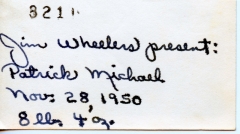 3211
Jim Wheelers present:
Patrick Michael
Nov. 28, 1950
8 lbs 4 oz.